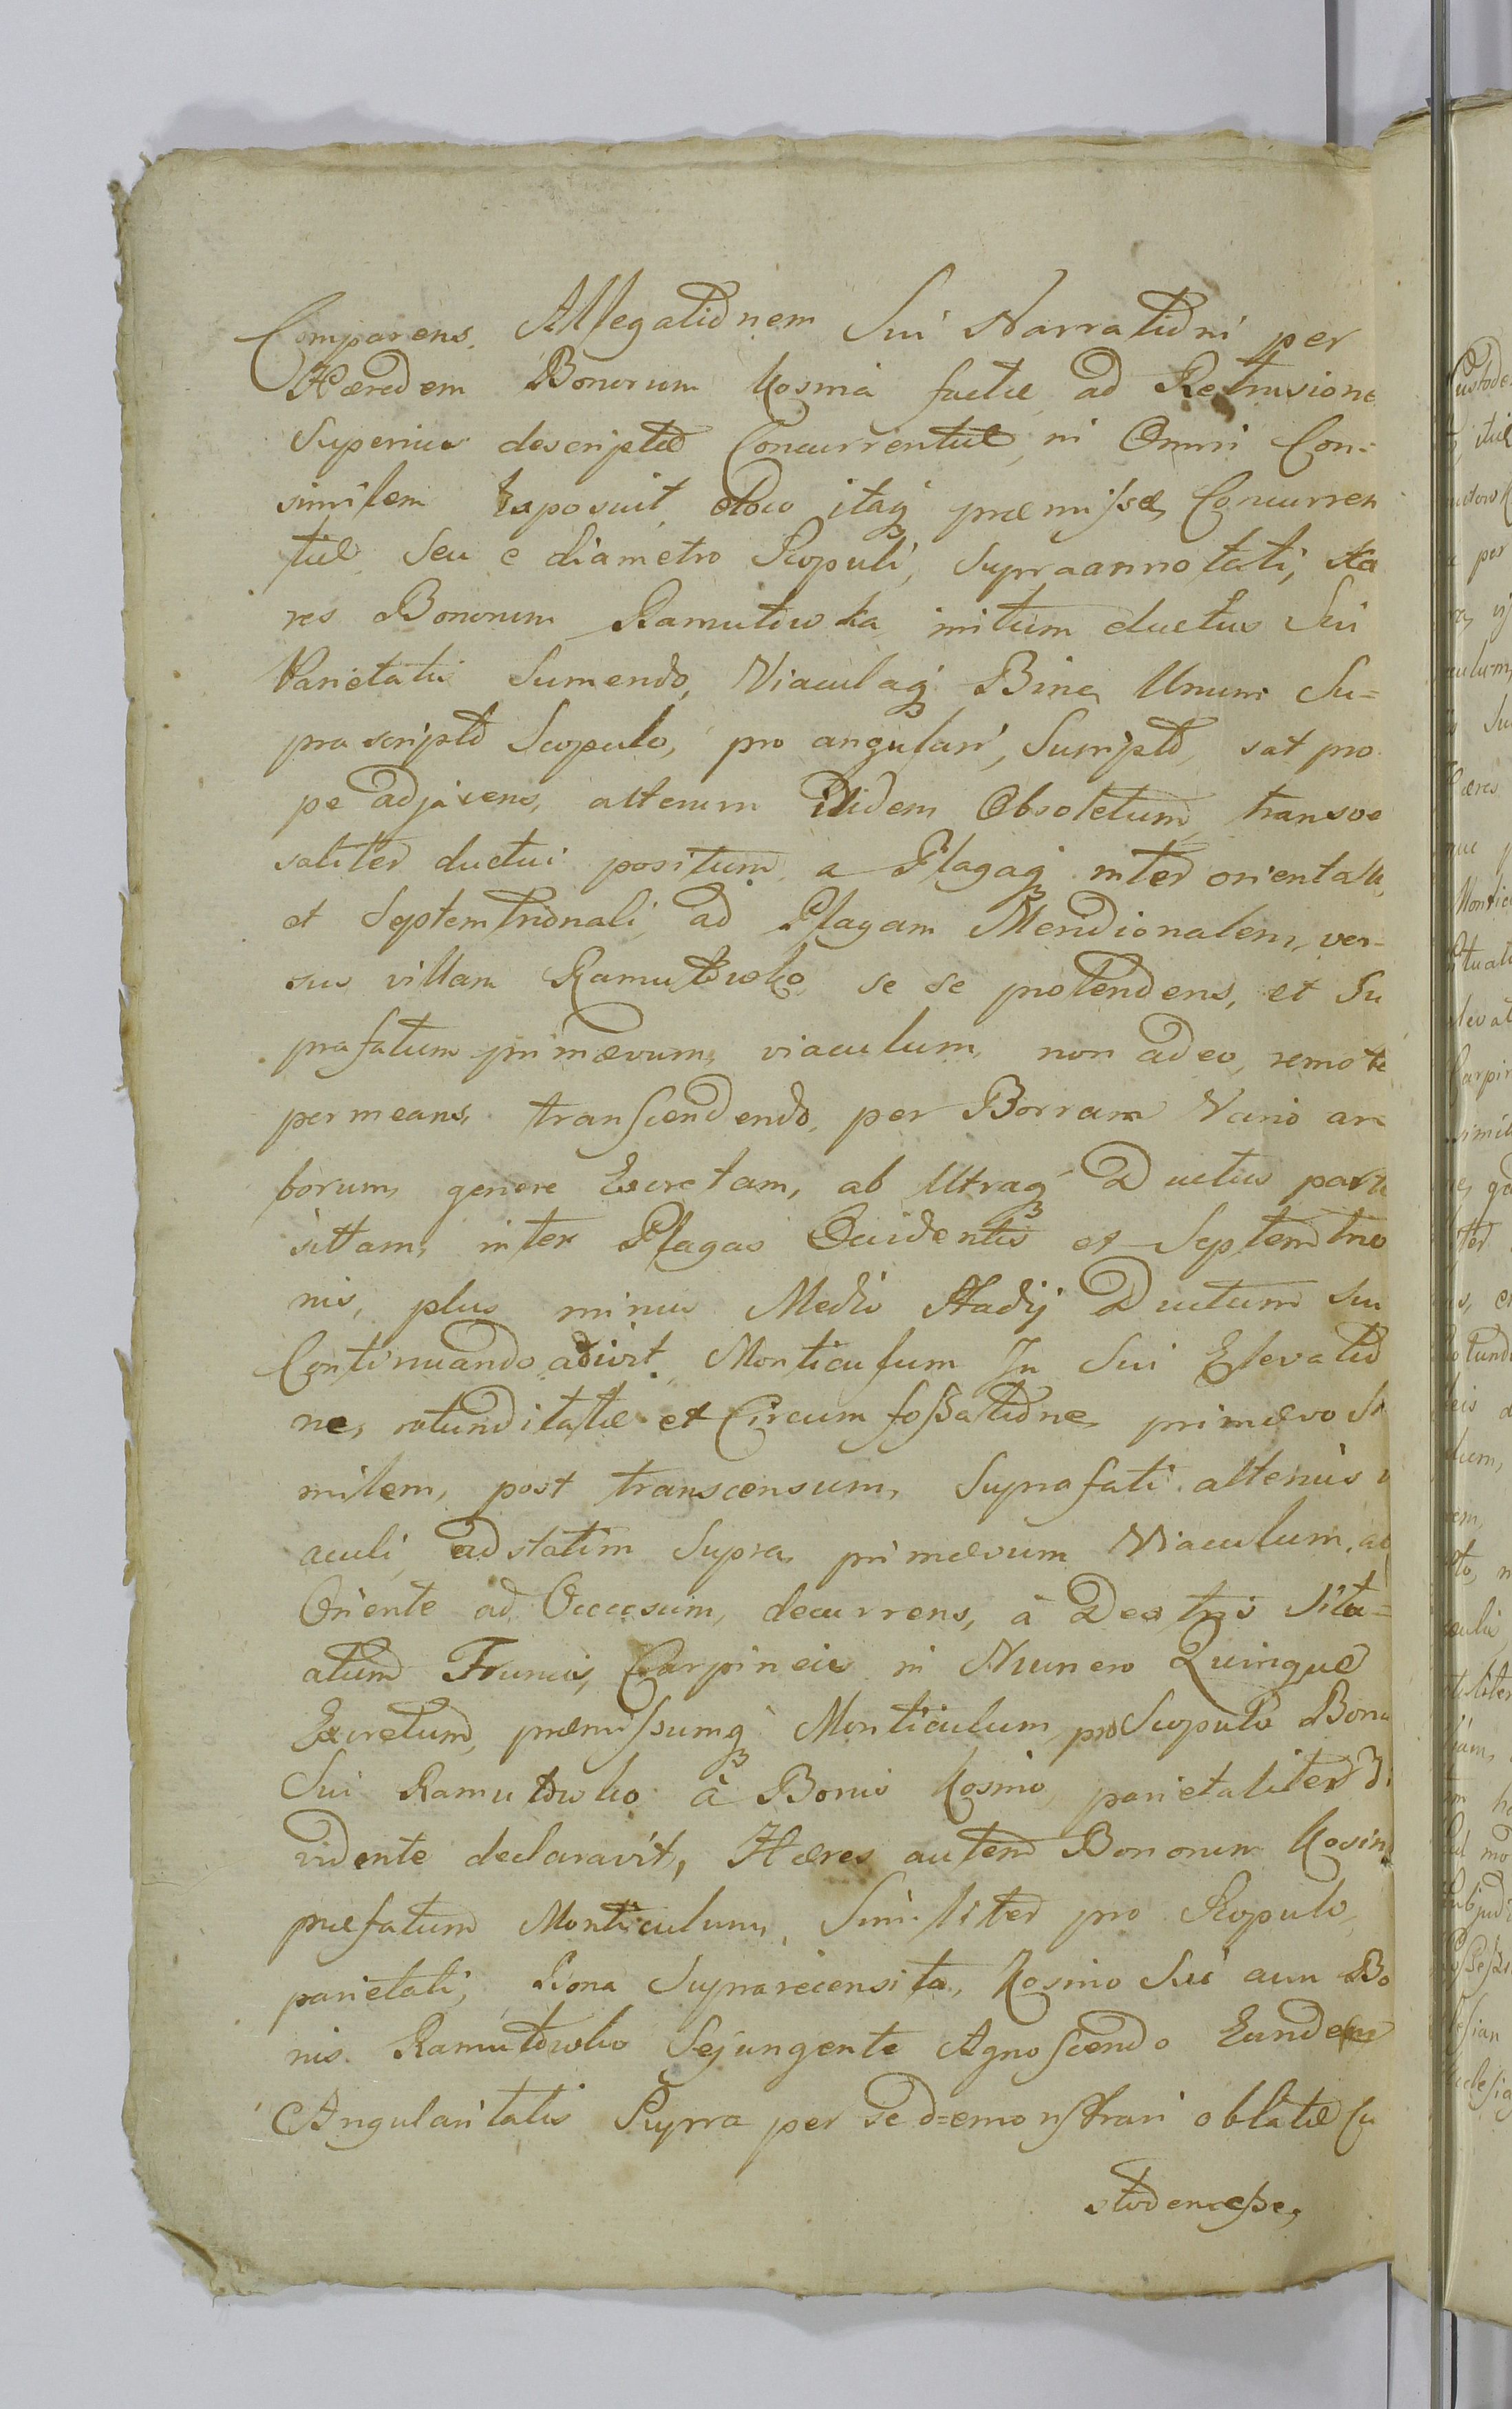 Comparens, Allegationem Sui Narrationi per
Hæredem Bonorum Kosmia factæ, ad Retrusione
Superius descripto Concurrentiæ, in Omni Con=
similem Exposuit, eloco itaq præmissæ, Concurren
tiæ seu e diametro Scopuli, supraannotati, Hæ
res Bonorum Ramutowka initum ductus Sui
Parietatis Sumendo, Viaculaq Bina, Unum Su=
prascripto Scopulo, pro angulari, Sumpto, sat pro
pe adjacens, alterum itidem Obsoletum, transve
saliter ductui positum, a Plagaq inter orientali,
et Septemtrionali, ad Plagam Meridionalem, ver=
sus villam Ramutowko se se protendens, et Su
prafatum primævum, viaculum, non adeo, remote
permeans, transcendendo, per Borram Vario ar
borum, genere Excretam, ab Utraq Ductus parte
sittam, inter Plagas Occidentis et Septemtrio
nis, plus minus Medio Stadij Ductum suu
Continuando adivit, Monticulum In Sui Elevatio
ne, rotunditatæ et Circum foßatione, primævo Si
milem, post transcensum, Suprafati, alterius v
aculi, adstatim supra, primævum Viaculum, ab
Oriente ad Occasum, decurrens, à Dextris Sita=
atum Truncis, Carpineis in Numero Quinque
Excretum, præmissumq Monticulum, pro Scopulo Bona
Sui Ramutowko à Bonis Kosmo, parietaliter di
vidente declaravit, Hæres autem Bonorum Kosin
præfatum Monticulum, Similiter pro Scopulo,
parietali, Bona Suprarecensita, Kosino Sui aun Bo
nis Ramutowko Sejungente Agnoscendo Eundem
Angularitatis Supra per se demonstrari oblatæ Cu
stodem eße,